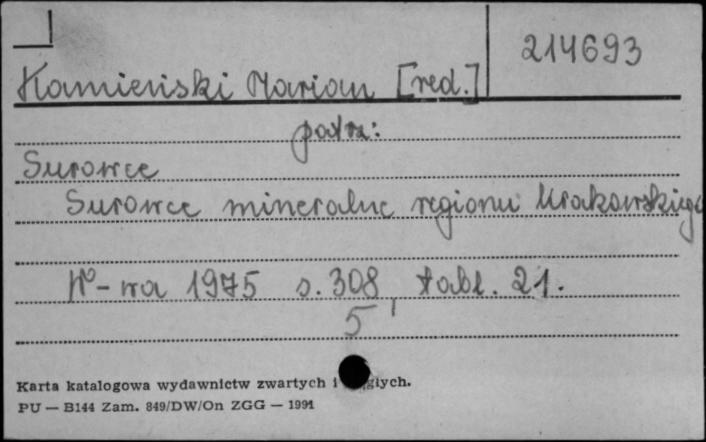 214693
Kamieński Marian [red.]
patrz:
Surowce
Surowce mineralne regionu Krakowskiego
W-wa 1975 s. 308, tabl. 21.
5
Karta katalogowa wydawnictw zwartych i
PU — B144 Zam. 849/DW/On ZGG — 1991